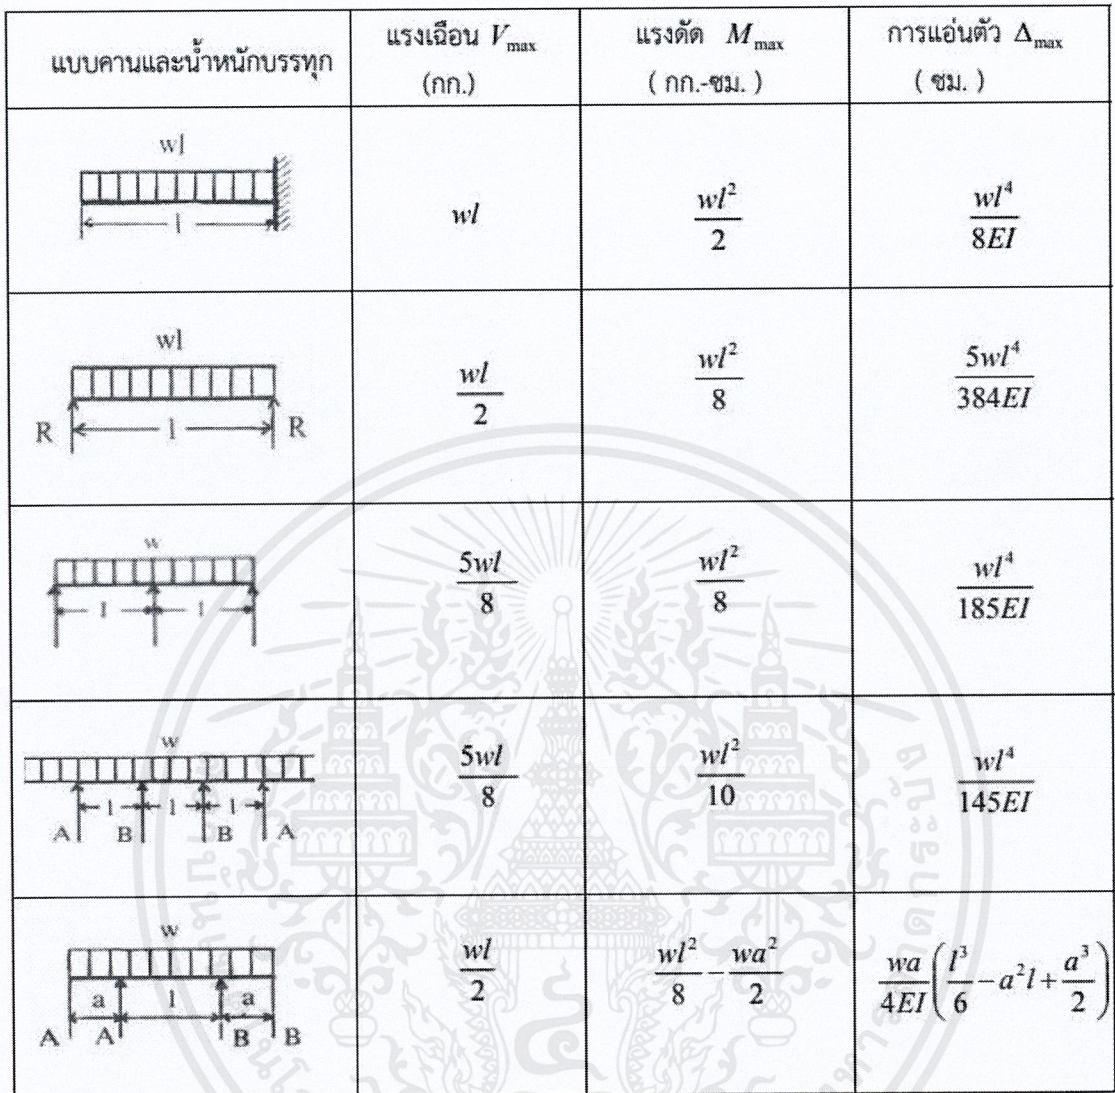 แบบคานและน้ำหนักบรรทุก
แรงเฉือน V_max
(กก.)
แรงดัด M_max
( กก.-ซม. )
การแอ่นตัว Δ_max
( ซม. )
wl
l
wl
wl²/2
wl⁴/8EI
wl
R l R
wl/2
wl²/8
5wl⁴/384EI
w
l l
5wl/8
wl²/8
wl⁴/185EI
w
l l l
A B B A
5wl/8
wl²/10
wl⁴/145EI
w
a l a
A A B B
wl/2
wl²/8 - wa²/2
wa/4EI (l³/6 - a²l + a³/2)